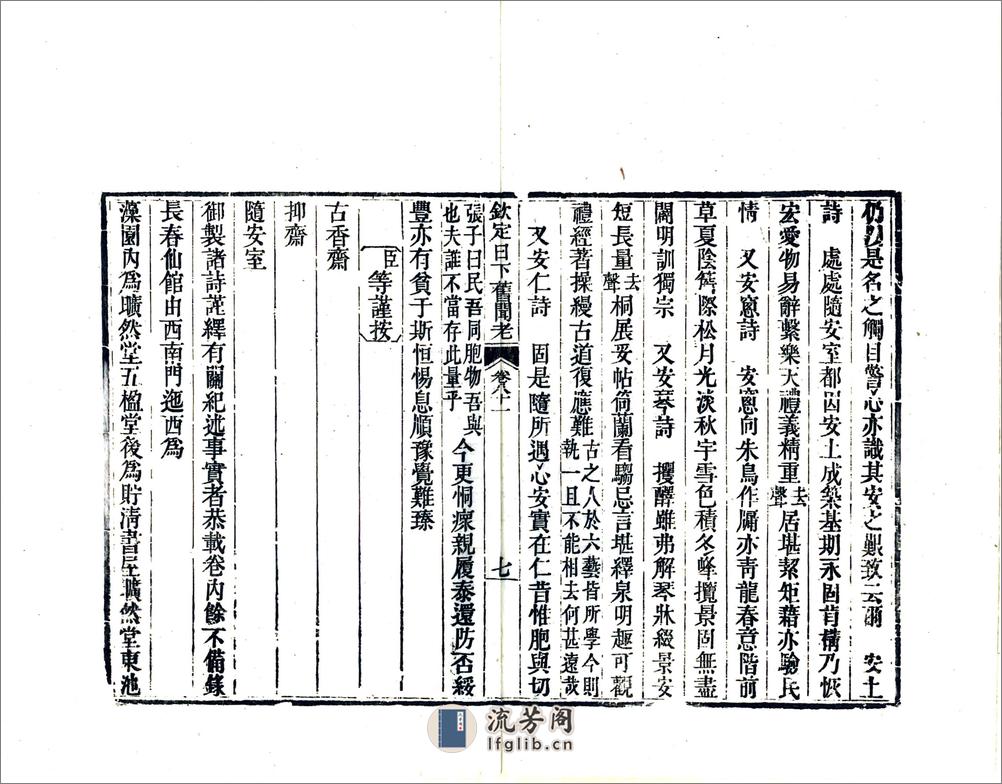 仍以是名之觸目警心亦識其安之艱致云爾　安土
詩　處處隨安室都因安土成築基期永固肯構乃恢
宏愛物易辭繫樂天禮義精重去聲居堪絜矩藉亦驗民
情　又安窻詩　安窻向朱鳥作牖亦青龍春意階前
草夏陰簷際松月光淡秋宇雪色積冬峰攬景固無盡
闢明訓獨宗　又安琴詩　攫醳雖弗解琴牀綴景安
短長量去聲桐展妥帖荀蘭看騶忌言堪釋泉明趣可觀
禮經著操縵古道復應難古之人於六藝皆所學今則執一且不能相去何甚遠哉
又安仁詩　固是隨所遇心安實在仁昔惟胞與切
欽定日下舊聞考　卷八十一　七
張子曰民吾同胞物吾與也夫誰不當存此量乎今更恫瘝親履泰還防否綏
豐亦有貧于斯恒惕息順豫覺難臻
臣等謹按
古香齋
抑齋
隨安室
御製諸詩謹繹有關紀述事實者恭載卷內餘不備錄
長春仙館由西南門迤西爲
藻園內爲曠然堂五楹堂後爲貯清書屋曠然堂東池
流芳阁
lfglib.cn